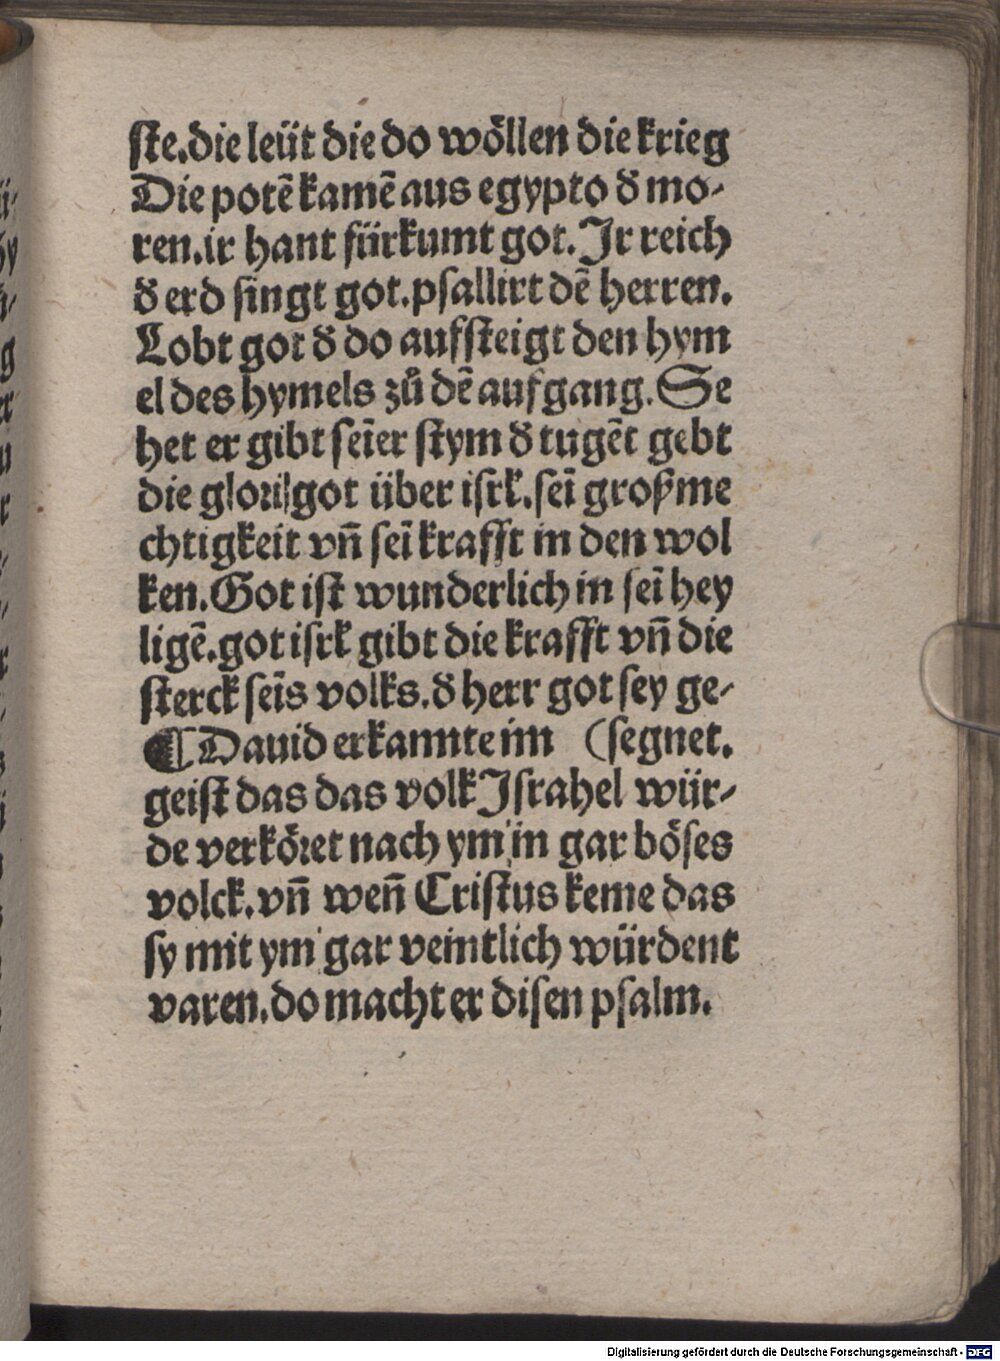 ſte.die leüt die do wöllen die krieg
Die potē kamē aus egypto đ mo-
ren.ir hant fürkumt got.Ir reich
đ erd ſingt got.pſallirt dē herren.
Lobt got đ do aufſteigt den hym
el des hymels zů dē aufgang.Se
het er gibt ſeīer ſtym đ tugēt gebt
die glori got über iſrk.ſeī groſzme
chtigkeit vn̄ ſeī krafft in den wol
ken.Got iſt wunderlich in ſeī hey
ligē.got iſrk gibt die krafft vn̄ die
ſterck ſeīs volks.đ herr got ſey ge-
¶ Dauid erkannte im (ſegnet.
geiſt das das volk Iſrahel wür-
de verköret nach ym in gar böſes
volck.vn̄ wen̄ Criſtus keme das
ſy mit ym gar veintlich würdent
varen.do macht er diſen pſalm.
Digitalisierung gefördert durch die Deutsche Forschungsgemeinschaft - DFG